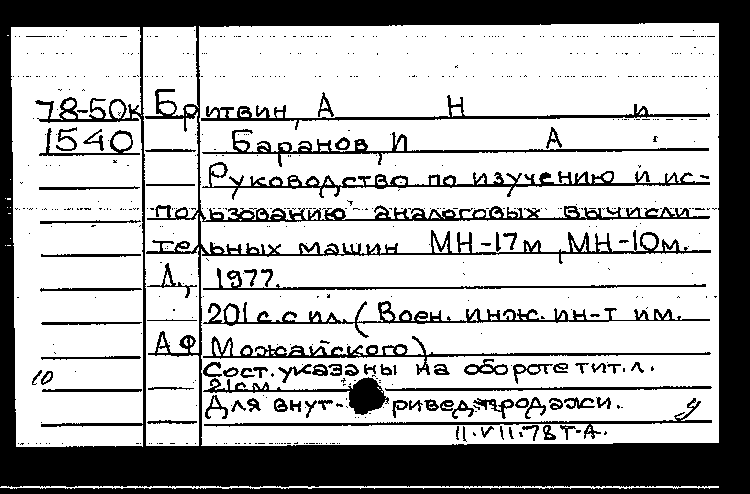 78-50к Бритвин, А Н и
1540 Баранов, И А
Руководство по изучению и ис-
пользованию аналоговых вычисли-
тельных машин МН-17м, МН-10м.
Л., 1977.
201 с. с ил. (Воен. инж. ин-т им.
А Ф Можайского).
Сост. указаны на обороте тит. л.
10 21см.
Для внут- ривед. продажи.
11.VII.78 Т-А.